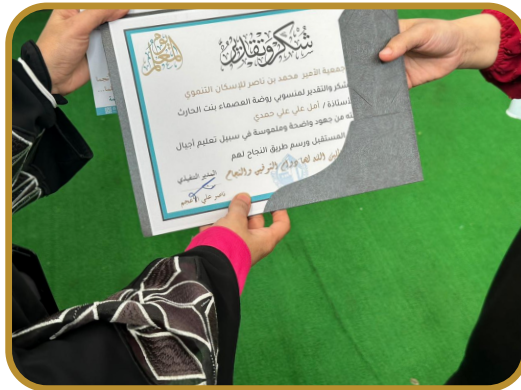 يوم المعلم
شكر وتقدير
جمعية الأمير محمد بن ناصر للإسكان التنموي
شكر والتقدير لمنسوبي روضة العصماء بنت الحارث
أستاذة / أمل علي علي حمدي
ته من جهود واضحة وملموسة في سبيل تعليم أجيال
المستقبل ورسم طريق النجاح لهم
الله لها دوام الترقي والنجاح
المدير التنفيذي
ناصر علي